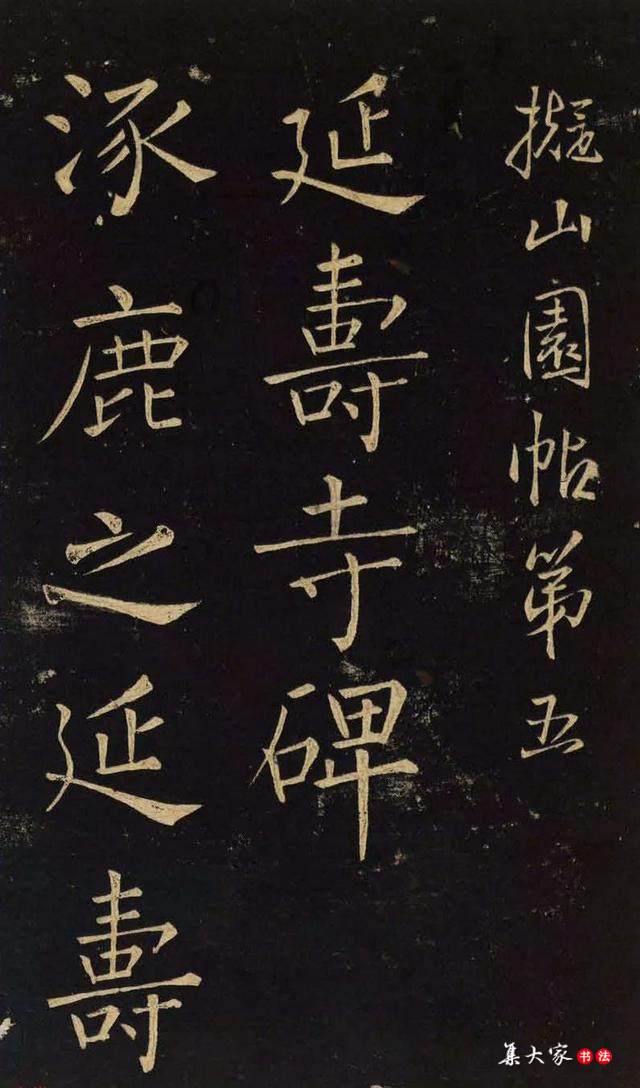 擬山園帖第五
延壽寺碑
涿鹿之延壽
集大家书法